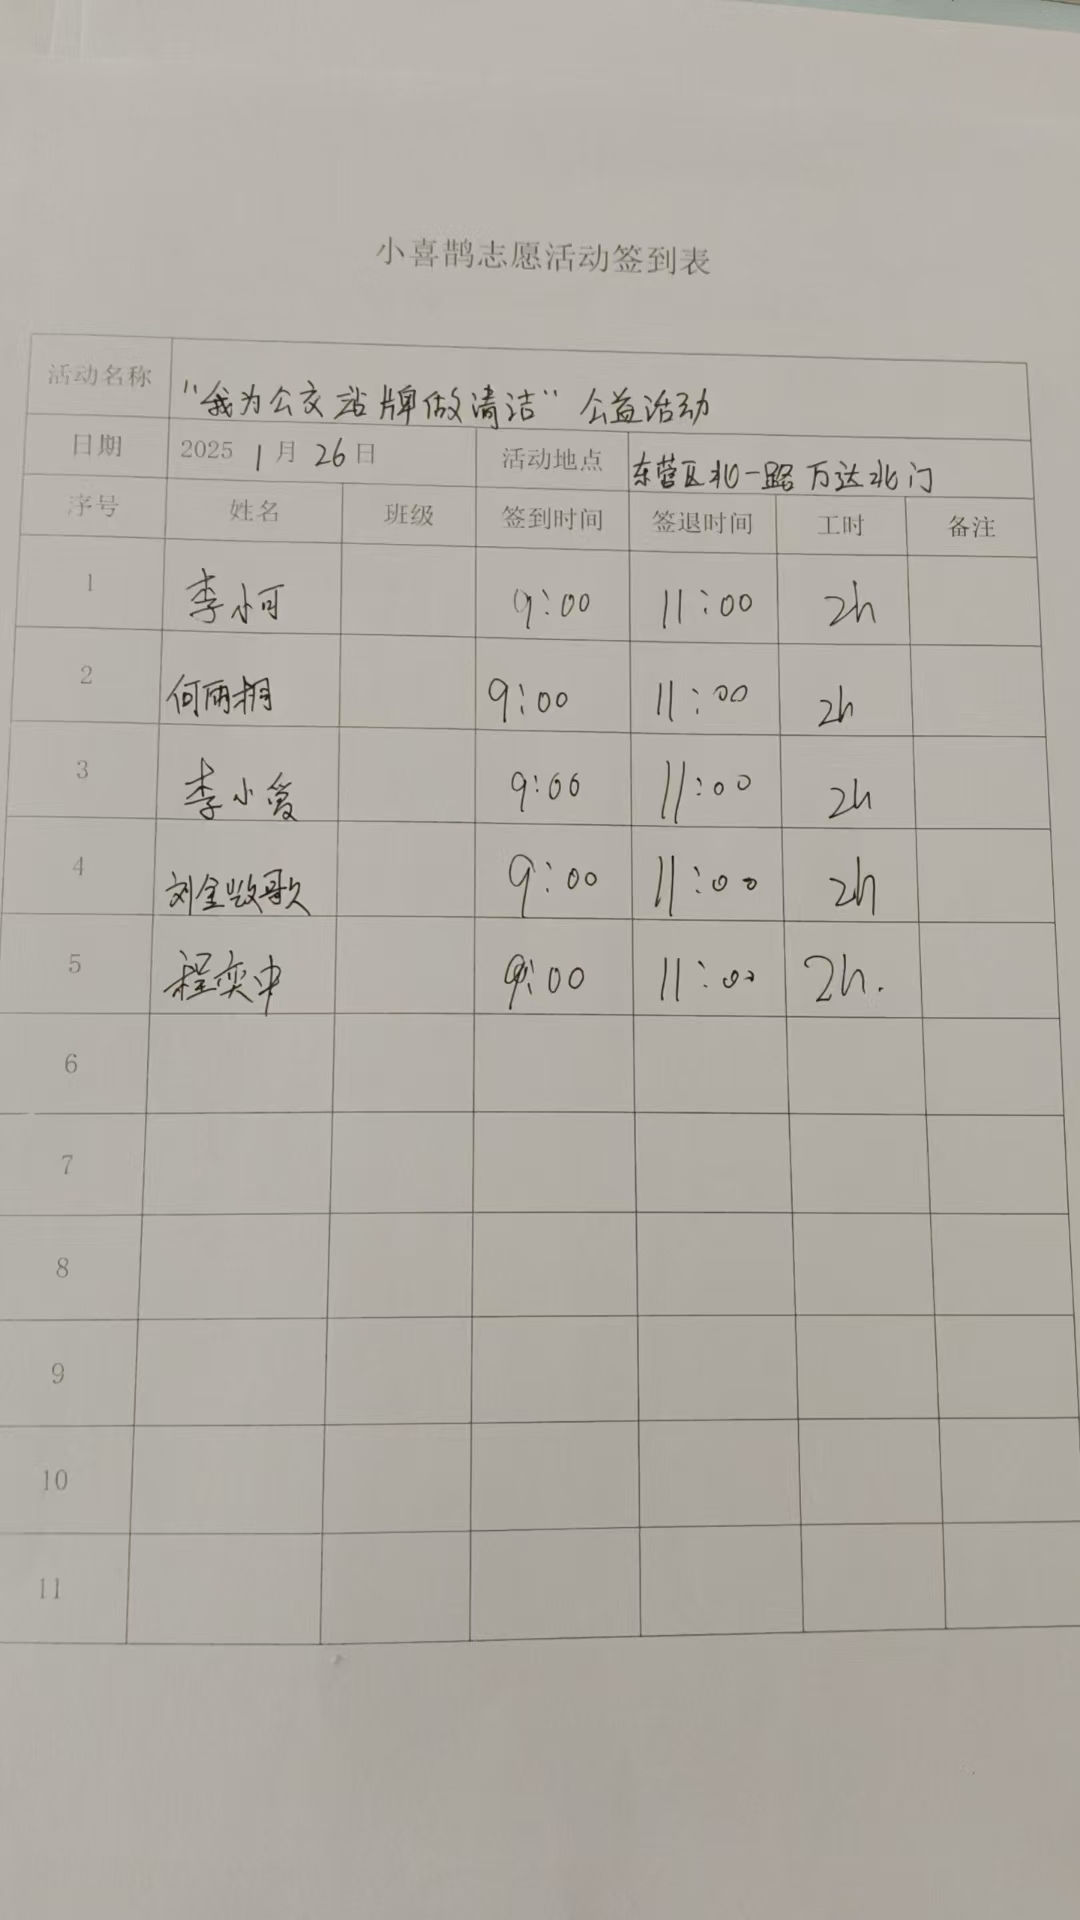 小喜鹊志愿活动签到表
活动名称 "我为公交站牌做清洁" 公益活动
日期 2025 1月26日 活动地点 东营区北一路万达北门
序号 姓名 班级 签到时间 签退时间 工时 备注
1 李小可 9:00 11:00 2h
2 何雨栩 9:00 11:00 2h
3 李小爱 9:00 11:00 2h
4 9:00 11:00 2h
5 程奕中 9:00 11:00 2h.
6
7
8
9
10
11